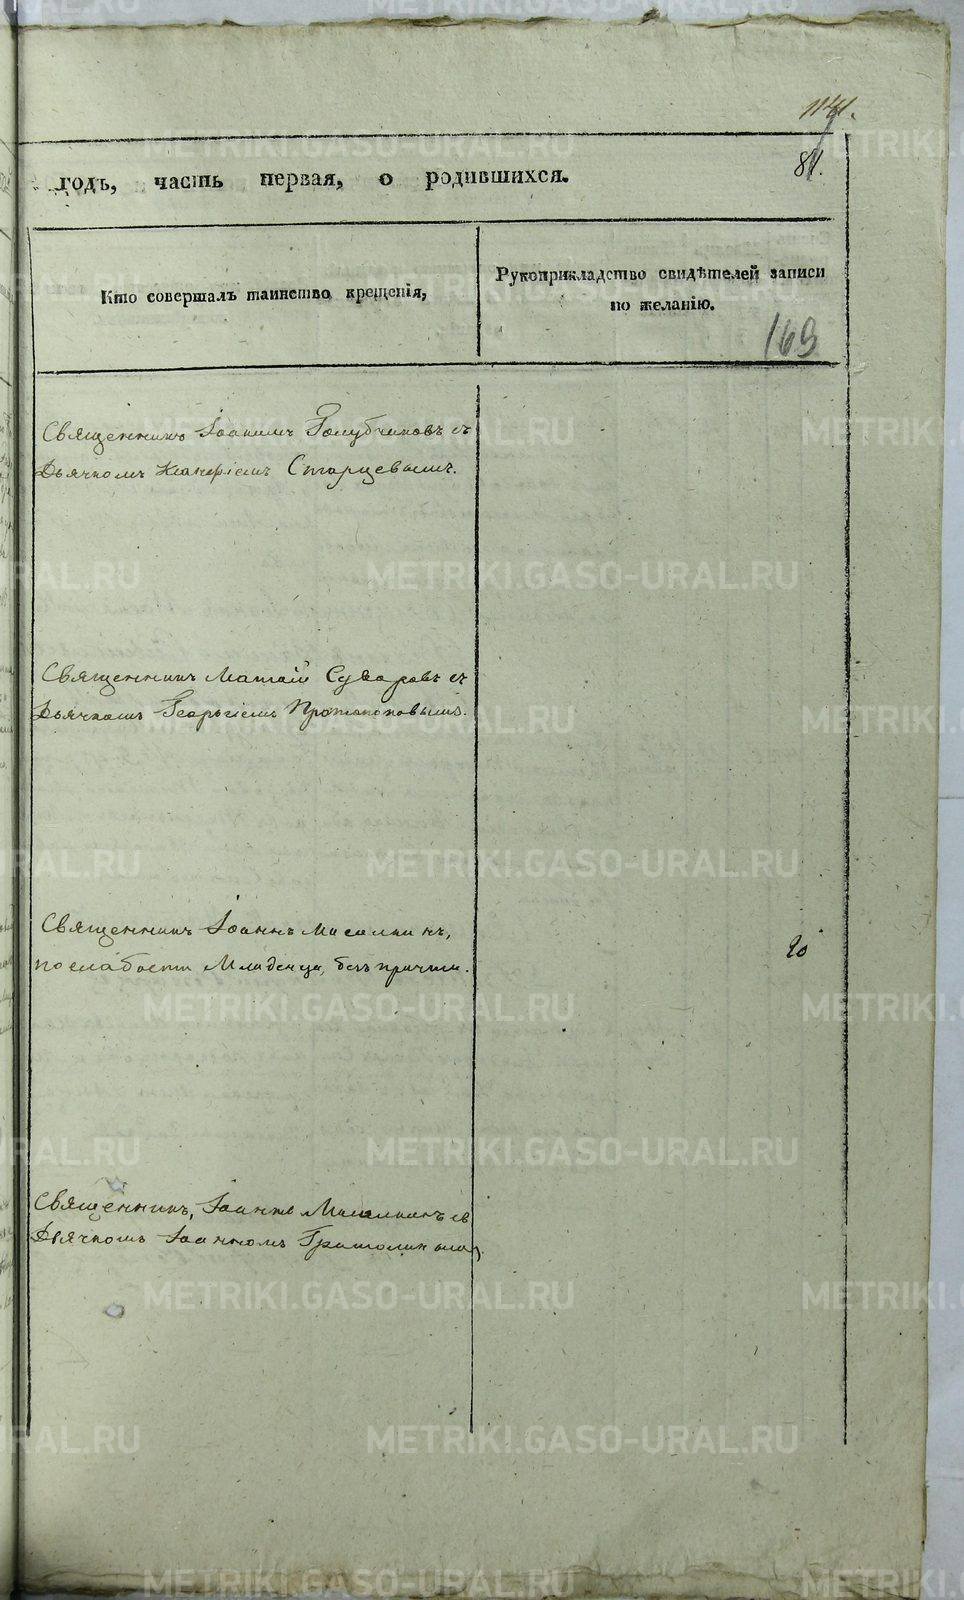 1141.
81.
годъ, часть первая, о родившихся.
Кто совершалъ таинство крещенія,
Рукоприкладство свидѣтелей записи
по желанію.
169
Священникъ Іоакимъ Голубчиковъ съ
Дьячкомъ Старцевымъ.
Священникъ Матѳій Суваровъ съ
Дьячкомъ Георгіемъ Протопоповымъ.
Священникъ Іоаннъ
по слабости Младенца, безъ причта.
20
Священникъ, Іоаннъ съ
Дьячкомъ Іоанномъ
METRIKI.GASO-URAL.RU